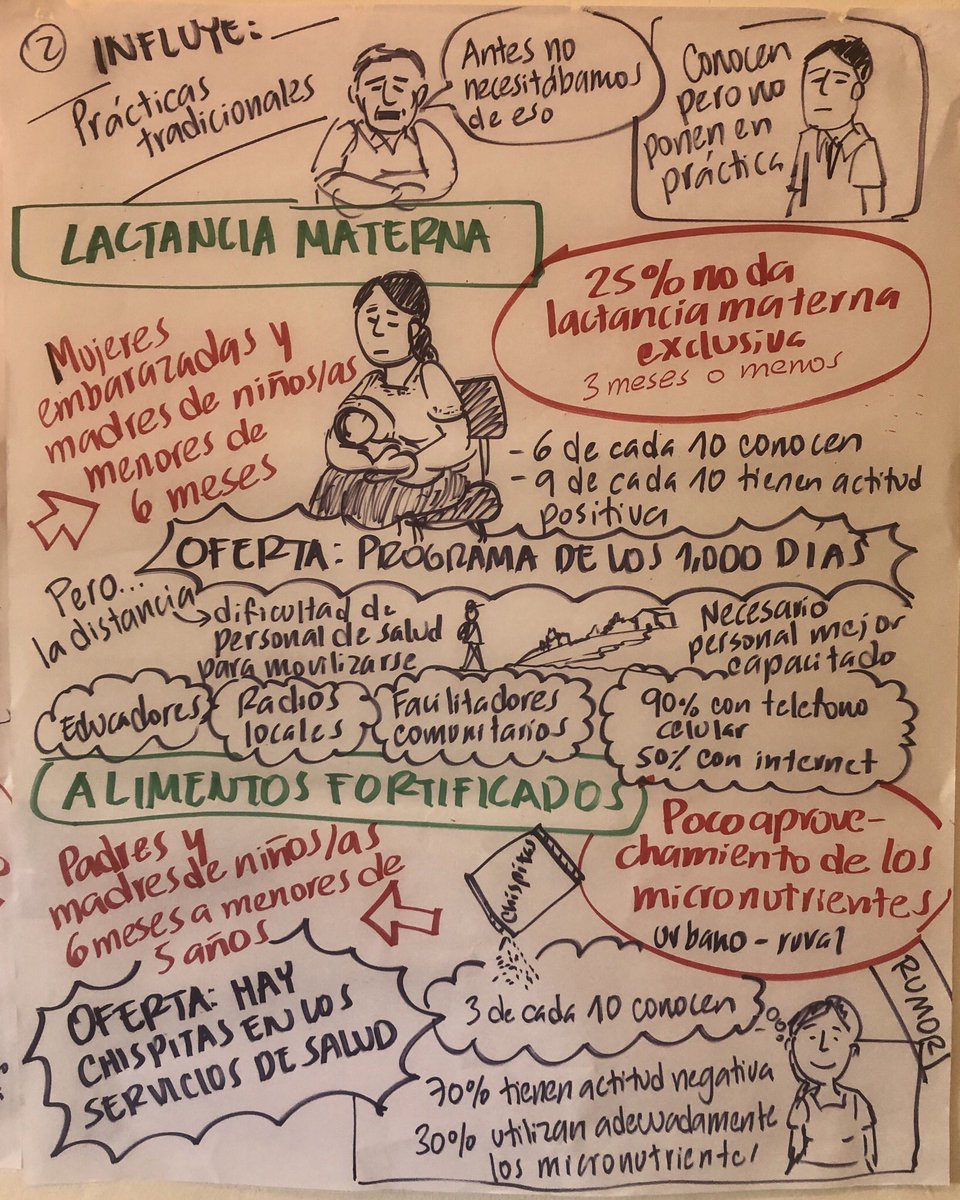 2 INFLUYE:
Prácticas
tradicionales
Antes no
necesitábamos
de eso
Conocen
pero no
ponen en
práctica
LACTANCIA MATERNA
25% no da
lactancia materna
exclusiva
3 meses o menos
Mujeres
embarazadas y
madres de niños/as
menores de
6 meses
- 6 de cada 10 conocen
- 9 de cada 10 tienen actitud
positiva
OFERTA: PROGRAMA DE LOS 1,000 DÍAS
Pero...
la distancia
dificultad de
personal de salud
para movilizarse
Necesario
personal mejor
capacitado
Educadores
Radios
locales
Facilitadores
comunitarios
90% con teléfono
celular
50% con internet
ALIMENTOS FORTIFICADOS
Padres y
madres de niños/as
6 meses a menores de
5 años
Chispitas
Poco aprove-
chamiento de los
micronutrientes
urbano - rural
RUMOR
OFERTA: HAY
CHISPITAS EN LOS
SERVICIOS DE SALUD
3 de cada 10 conocen
70% tienen actitud negativa
30% utilizan adecuadamente
los micronutrientes